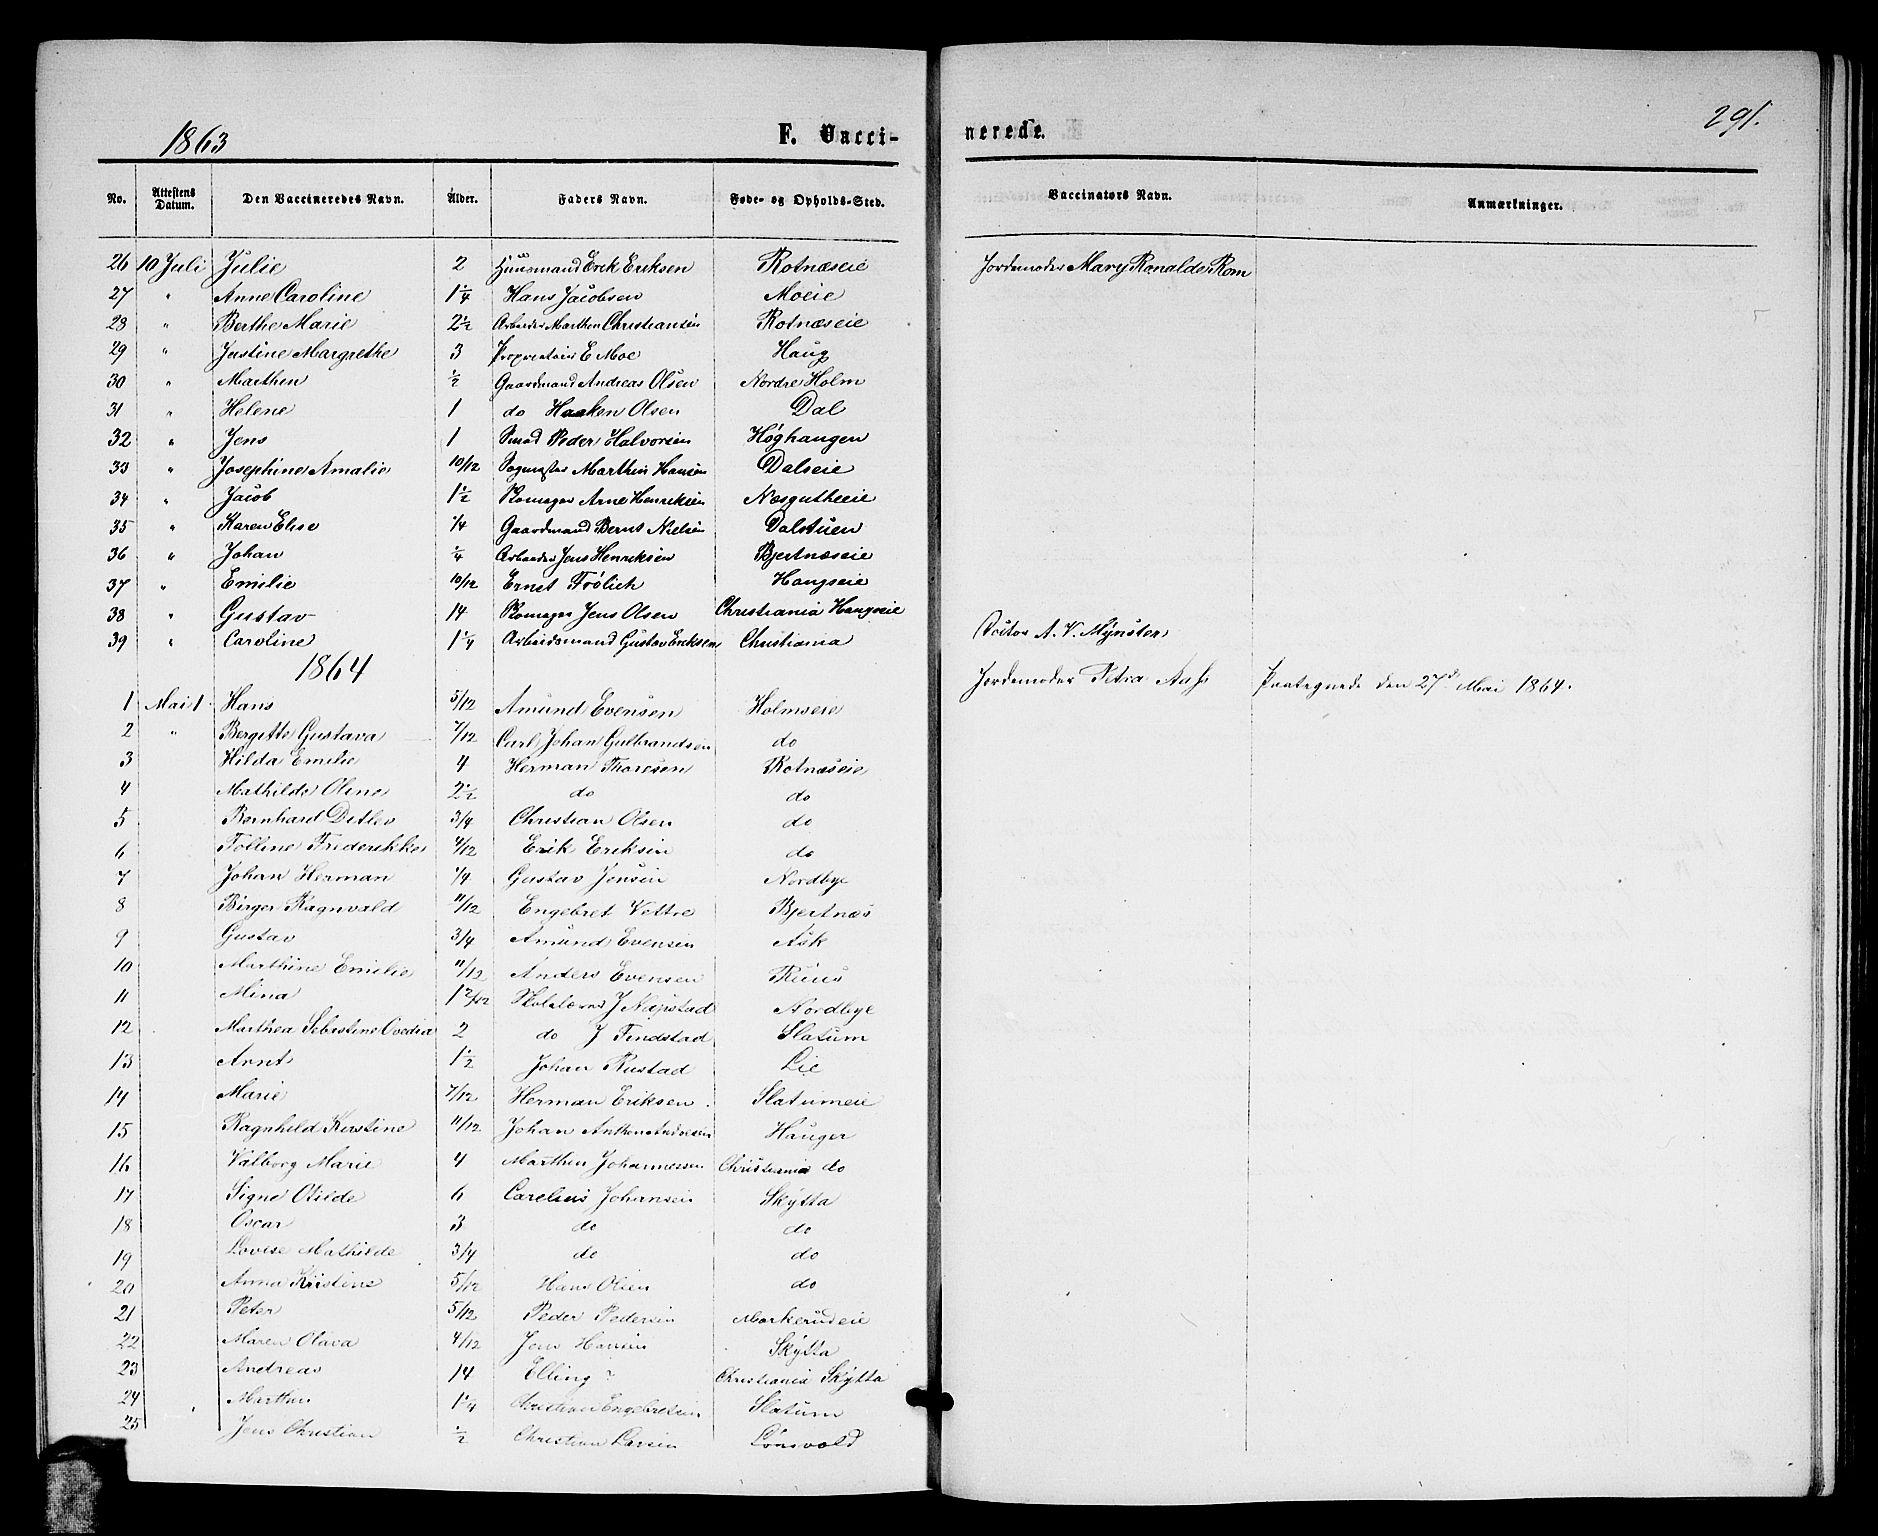 1863 F. Vacci- nerede. 291.
No. Attestens Datum. Den Vaccineredes Navn. Alder. Faders Navn. Føde- og Opholds-Sted. Vaccinators Navn. Anmærkninger.
26 10 Juli Julie 2 Huusmand Erik Eriksen Rotnæseie Jordemoder Mary Ronalde Rom
27 " Anne Caroline 1 1/4 Hans Jacobsen Moeie
28 " Berthe Marie 2 1/2 Arbeider Marthen Christiansen Rotnæseie
29 " Justine Margrethe 3 Proprietair E Moe Haug
30 " Marthin 1/2 Gaardmand Andreas Olsen Nordre Holm
31 " Helene 1 do Haaken Olsen Dal
32 " Jens 1 Smed Peder Halvorsen Høghaugen
33 " Josephine Amalie 10/12 Sagmester Marthin Hansen Dalseie
34 " Jacob 1 1/2 Skomager Arne Henriksen Næsgutheeie
35 " Karen Elise 1/4 Gaardmand Bernt Nielsen Dalstuen
36 " Johan 1/4 Arbeider Jens Henriksen Bjertnæseie
37 " Emilie 10/12 Ernst Frølich Haugseie
38 " Gustav 14 Skomager Jens Olsen Christiania Haugseie
39 " Caroline 1 1/4 Arbeidsmand Gustav Eriksen Christiania Doctor A. V. Mynster
1864
1 Mai 1 Hans 5/12 Amund Evensen Holmseie Jordemoder Petra Aass Paategnede den 27d Mai 1864.
2 " Bergitte Gustava 7/12 Carl Johan Gulbrandsen do
3 Hilda Emilie 4 Herman Thoresen Rotnæseie
4 Mathilde Oline 2 1/2 do do
5 Bernhard Ditlev 3/4 Christian Olsen do
6 Tolline Frederikke 4/12 Erik Eriksen do
7 Johan Herman 1/4 Gustav Jensen Nordbye
8 Birger Ragnvald 11/12 Engebret Vettre Bjertnæs
9 Gustav 3/4 Amund Evensen Ask
10 Marthine Emilie 11/12 Anders Evensen Ruus
11 Mina 1 2/12 Skolelærer J Napstad Nordbye
12 Marthea Sebistine Ovedia 2 do J Findstad Slatum
13 Arnt 1 1/2 Johan Rustad Lie
14 Marie 7/12 Herman Eriksen Slatumeie
15 Ragnhild Kirstine 11/12 Johan Anthon Andresen Hauger
16 Valborg Marie 4 Marthin Johannessen Christiania do
17 Signe Otilde 6 Carelius Johansen Skytta
18 Oscar 3 do do
19 Lovise Mathilde 3/4 do do
20 Anna Kristine 5/12 Hans Olsen do
21 Peter 5/12 Peder Pedersen Markerudeie
22 Maren Olava 4/12 Jens Hansen Skytta
23 Andreas 14 Elling ? Christiania Skytta
24 Marthin 1 1/4 Christian Engebretsen Slatum
25 Jens Christian 1/2 Christian Larsen Lønsvold